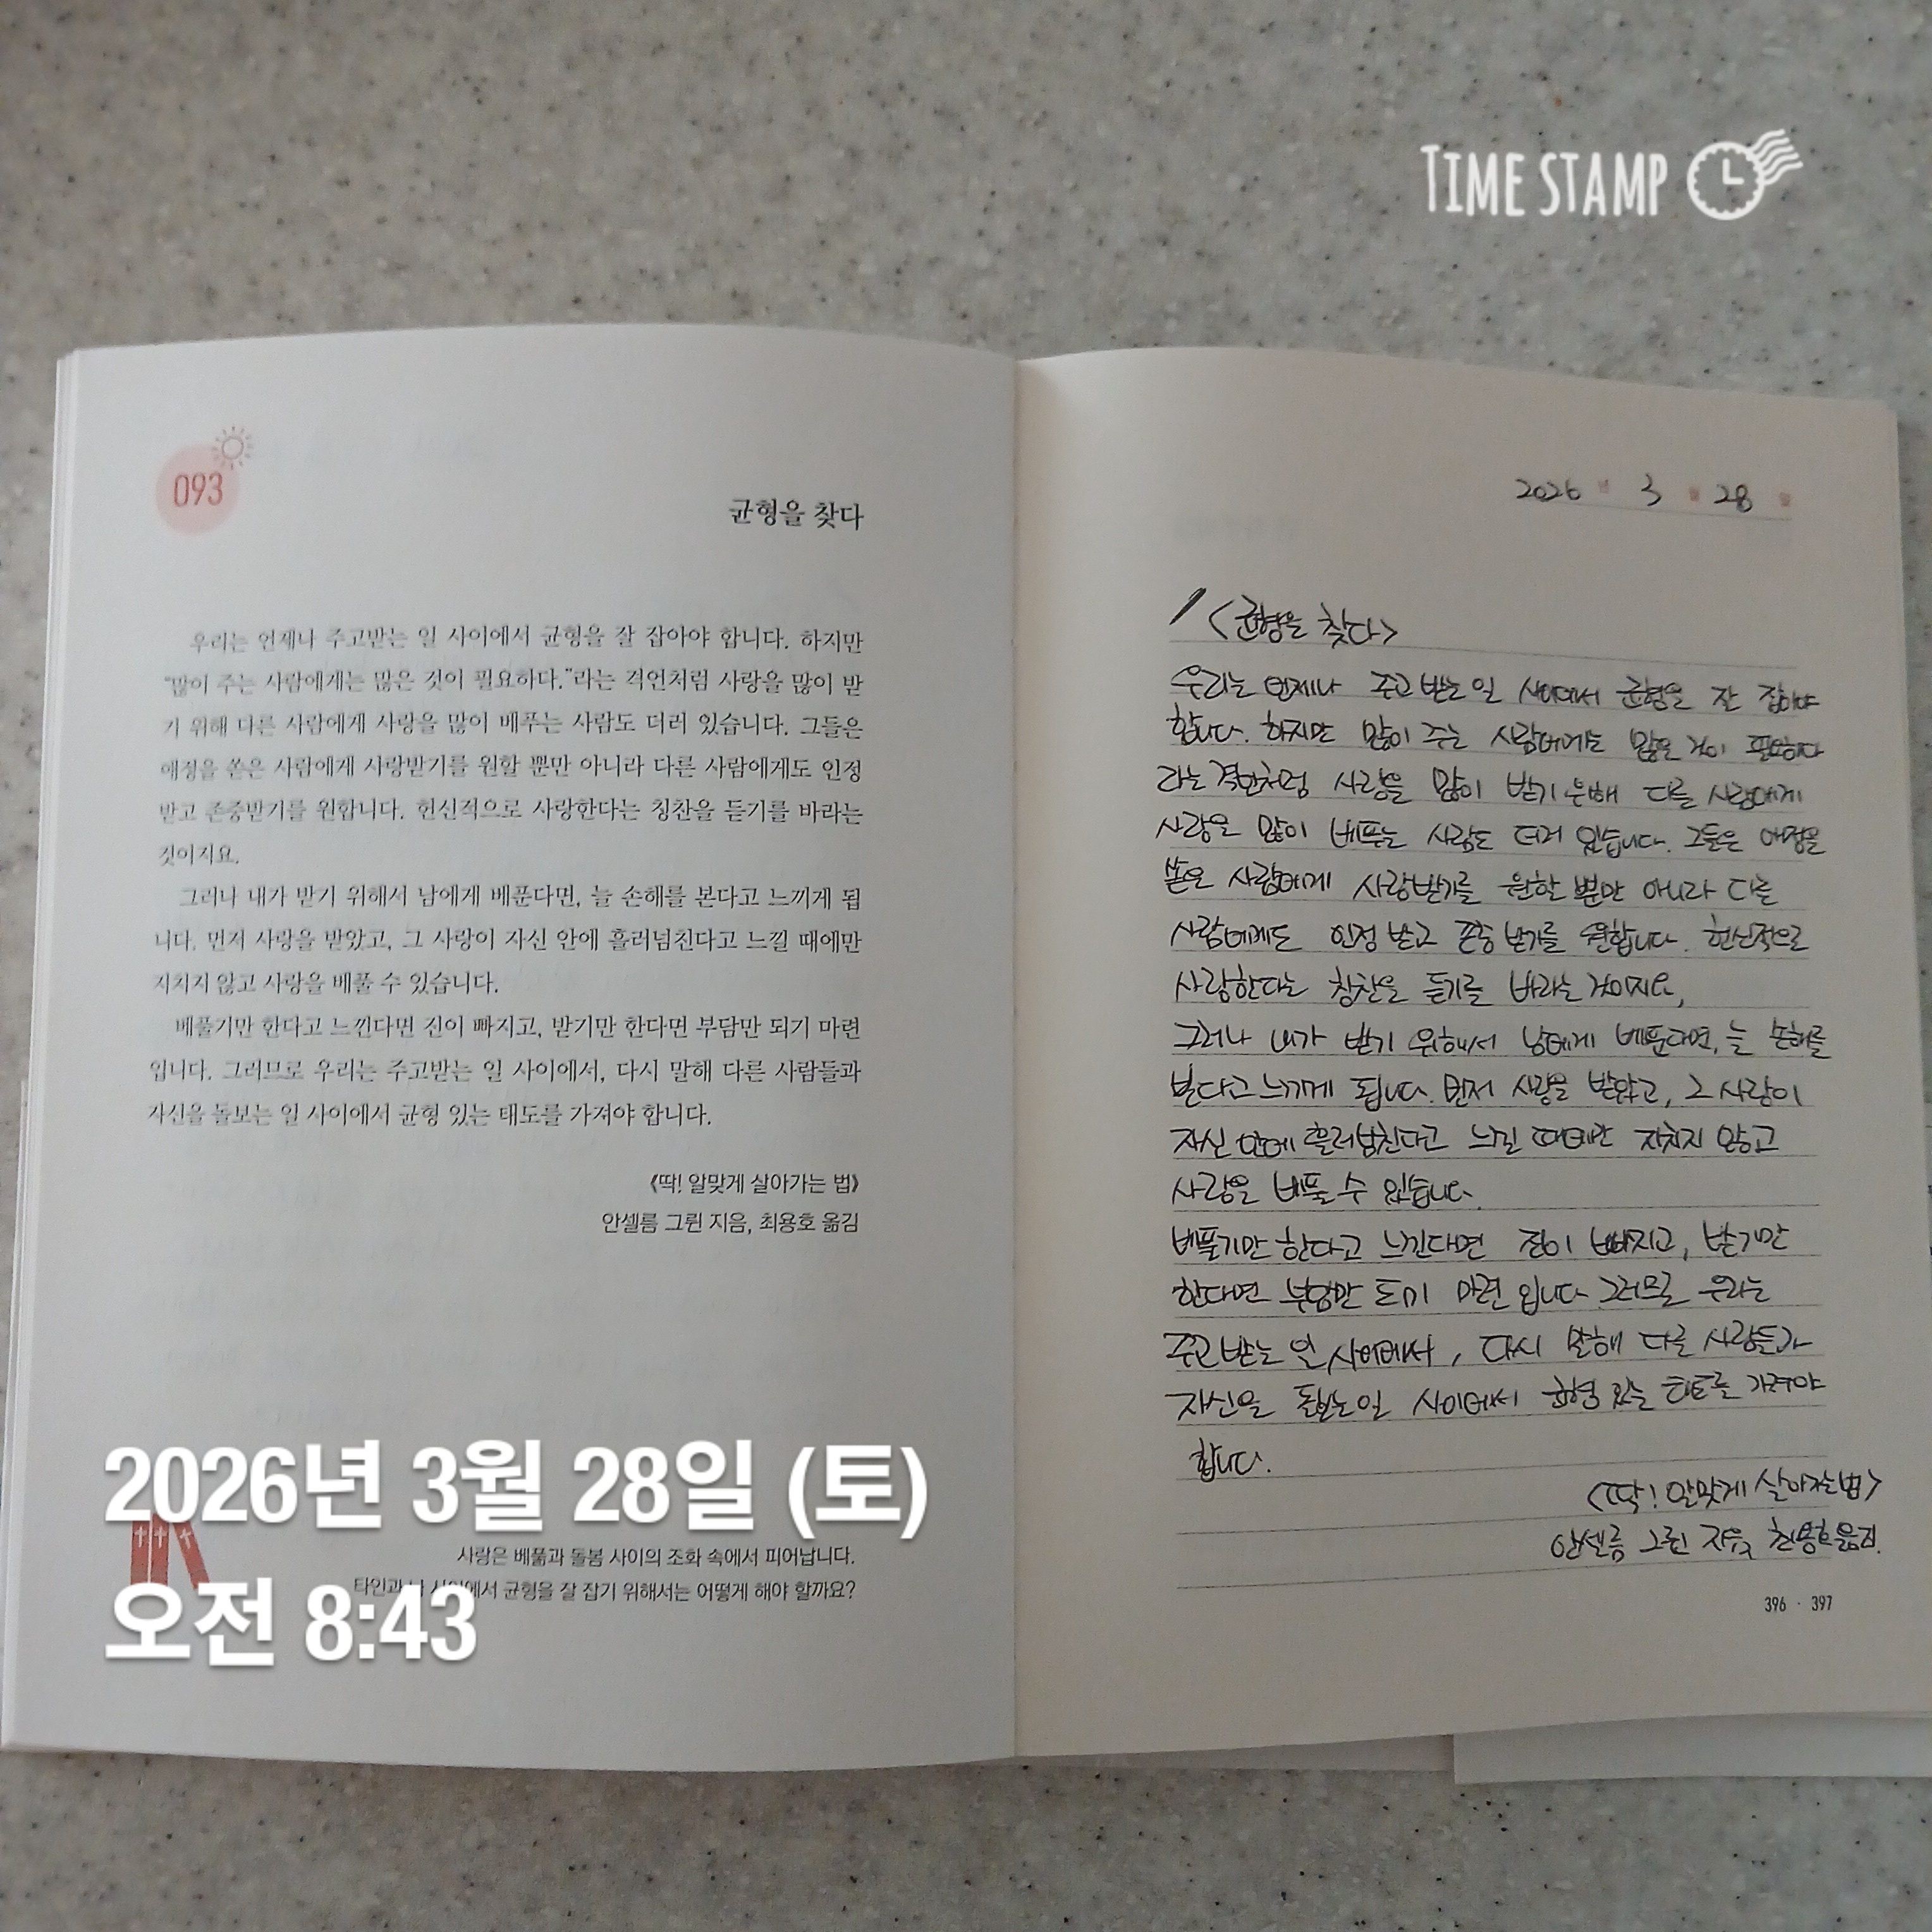 TIME STAMP
093
균형을 찾다
우리는 언제나 주고받는 일 사이에서 균형을 잘 잡아야 합니다. 하지만
“많이 주는 사람에게는 많은 것이 필요하다.”라는 격언처럼 사랑을 많이 받
기 위해 다른 사람에게 사랑을 많이 베푸는 사람도 더러 있습니다. 그들은
애정을 쏟은 사람에게 사랑받기를 원할 뿐만 아니라 다른 사람에게도 인정
받고 존중받기를 원합니다. 헌신적으로 사랑한다는 칭찬을 듣기를 바라는
것이지요.
그러나 내가 받기 위해서 남에게 베푼다면, 늘 손해를 본다고 느끼게 됩
니다. 먼저 사랑을 받았고, 그 사랑이 자신 안에 흘러넘친다고 느낄 때에만
지치지 않고 사랑을 베풀 수 있습니다.
베풀기만 한다고 느낀다면 진이 빠지고, 받기만 한다면 부담만 되기 마련
입니다. 그러므로 우리는 주고받는 일 사이에서, 다시 말해 다른 사람들과
자신을 돌보는 일 사이에서 균형 있는 태도를 가져야 합니다.
《딱! 알맞게 살아가는 법》
안셀름 그륀 지음, 최용호 옮김
사랑은 베풂과 돌봄 사이의 조화 속에서 피어납니다.
타인과 나 사이에서 균형을 잘 잡기 위해서는 어떻게 해야 할까요?
2026년 3월 28일 (토)
오전 8:43
2026 년 3 월 28 일
<균형을 찾다>
우리는 언제나 주고 받는 일 사이에서 균형을 잘 잡아야
합니다. 하지만 많이 주는 사람에게는 많은 것이 필요하다
라는 격언처럼 사랑을 많이 받기 위해 다른 사람에게
사랑을 많이 베푸는 사람도 더러 있습니다. 그들은 애정을
쏟은 사람에게 사랑받기를 원할 뿐만 아니라 다른
사람에게도 인정 받고 존중 받기를 원합니다. 헌신적으로
사랑한다는 칭찬을 듣기를 바라는 것이지요,
그러나 내가 받기 위해서 남에게 베푼다면, 늘 손해를
본다고 느끼게 됩니다. 먼저 사랑을 받았고, 그 사랑이
자신 안에 흘러넘친다고 느낄 때에만 지치지 않고
사랑을 베풀 수 있습니다.
베풀기만 한다고 느낀다면 진이 빠지고, 받기만
한다면 부담만 되기 마련 입니다 그러므로 우리는
주고 받는 일 사이에서, 다시 말해 다른 사람들과
자신을 돌보는 일 사이에서 균형 있는 태도를 가져야
합니다.
<딱! 알맞게 살아가는 법>
안셀름 그륀 지음, 최용호 옮김.
396 · 397